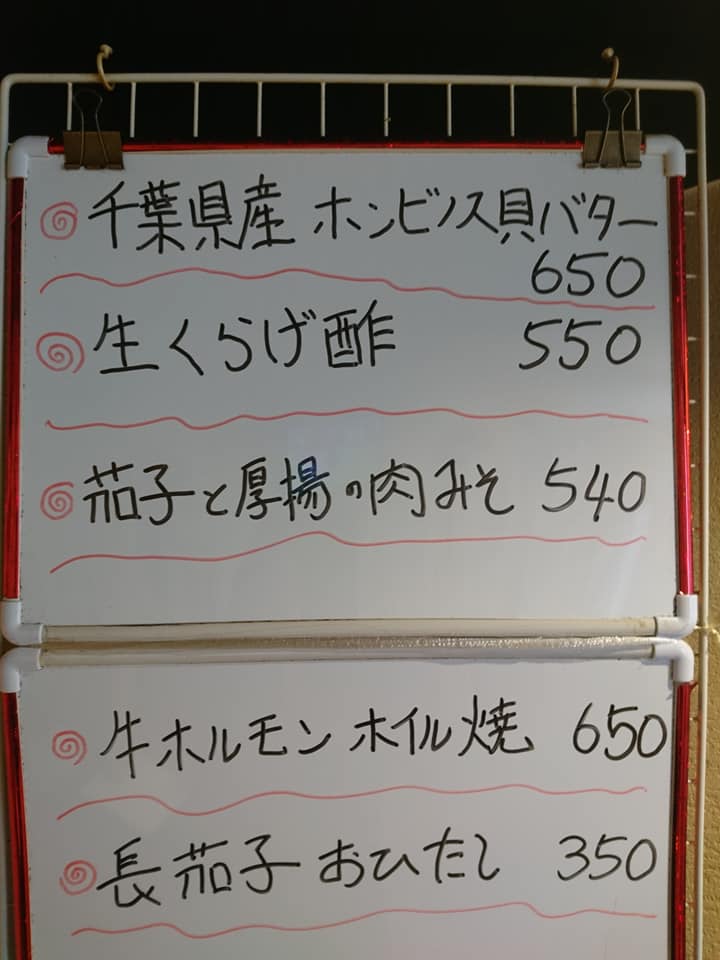 千葉県産 ホンビノス貝バター
650
生くらげ酢 550
茄子と厚揚の肉みそ 540
牛ホルモン ホイル焼 650
長茄子おひたし 350